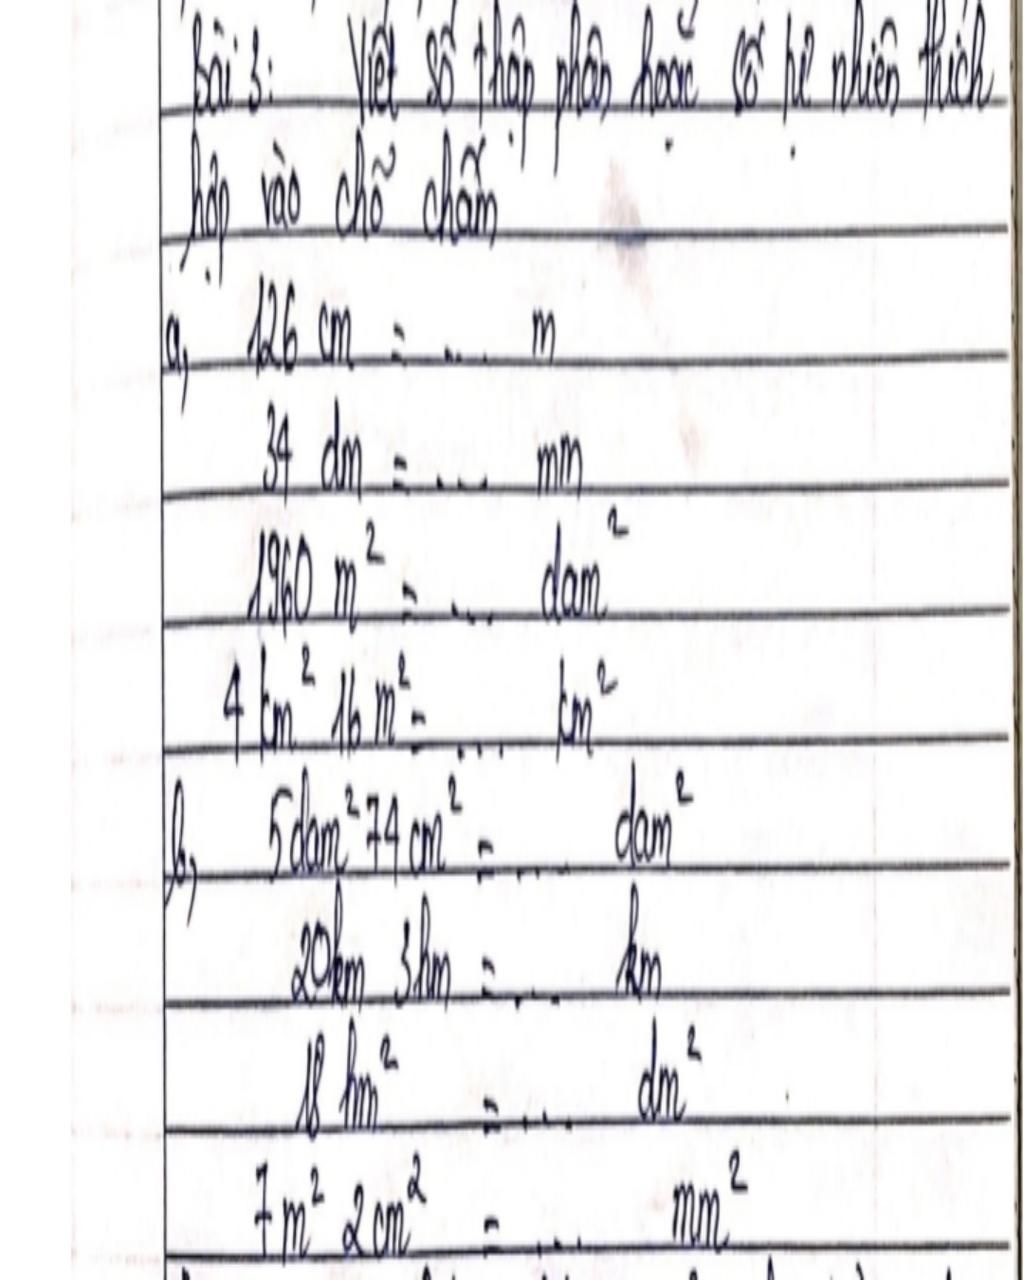 Bài 3: Viết số thập phân hoặc số tự nhiên thích
hợp vào chỗ chấm
a, 126 cm = ... m
34 dm = ... mm
1960 m² = ... dam²
4 km² 16 m² = ... km²
b, 5dam² 74 cm² = ... dam²
20km 3hm = ... km
18 hm² = ... dm²
7 m² 2 cm² = ... mm²